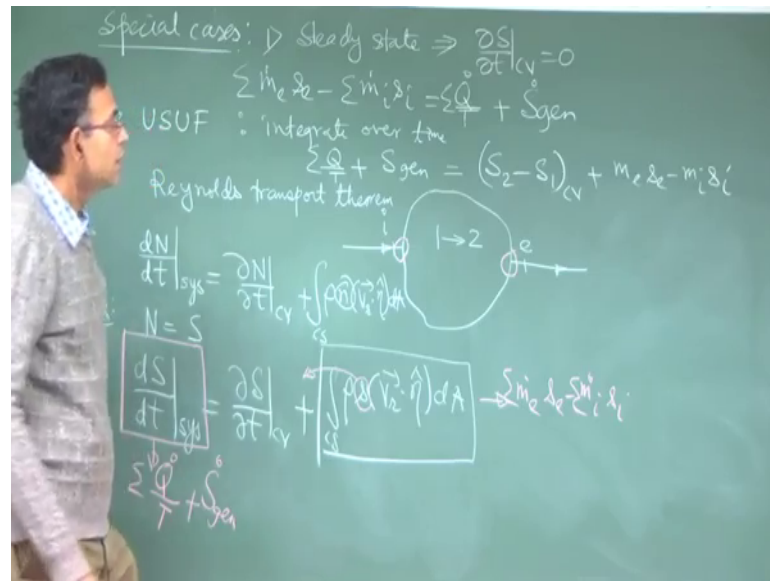 Special cases: 1) Steady state ⇒ ∂S/∂t|CV = 0
Σṁe se − Σṁi si = Σ Q̇/T + Ṡgen
USUF : integrate over time
Σ Q/T + Sgen = (S2 − S1)CV + me se − mi si
Reynolds transport theorem
i
1→2
e
dN/dt|sys = ∂N/∂t|CV + ∫CS ρn(V⃗r·η̂)dA
N = S
dS/dt|sys = ∂S/∂t|CV + ∫CS ρs(V⃗r·η̂)dA → Σṁe se − Σṁi si
Σ Q̇/T + Ṡgen